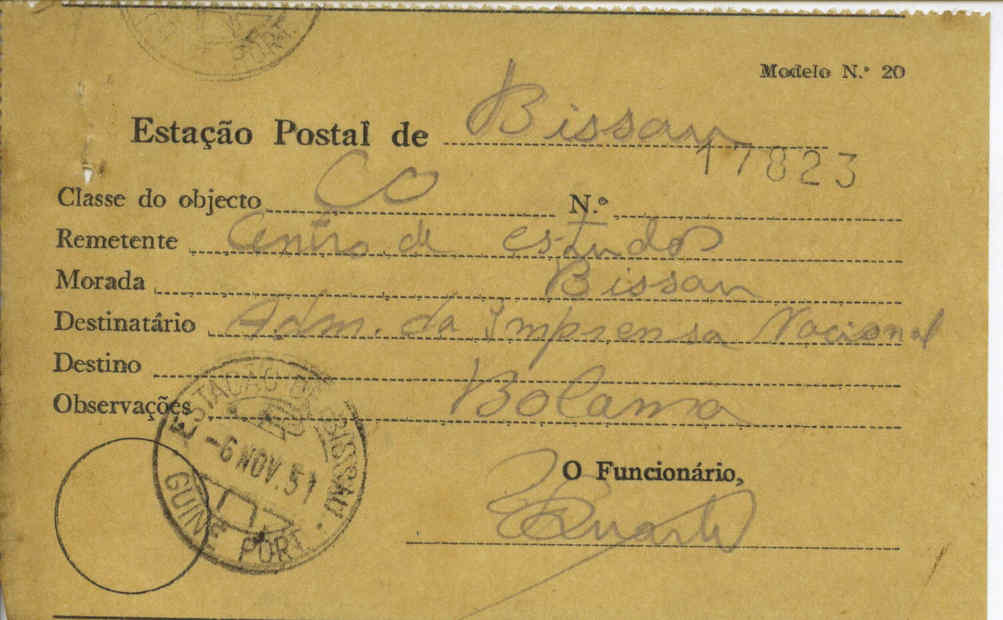 PORT.
Modelo N.º 20
Estação Postal de Bissau
17823
Classe do objecto CO N.º
Remetente Centro de estudos
Morada Bissau
Destinatário Adm. da Imprensa Nacional
Destino
Observações Bolama
ESTAÇÃO DE BISSAU.
-6 NOV. 51
GUINÉ PORT.
O Funcionário,
Duarte